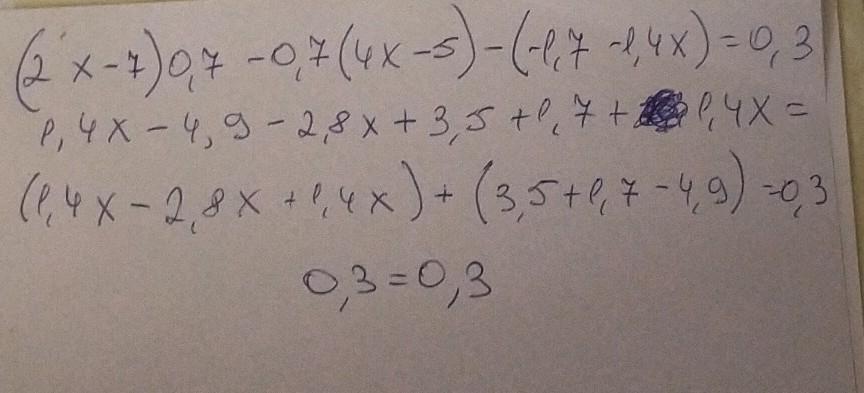 (2x-7)0,7-0,7(4x-5)-(-1,7-1,4x)=0,3
1,4x-4,9-2,8x+3,5+1,7+1,4x=
(1,4x-2,8x+1,4x)+(3,5+1,7-4,9)=0,3
0,3=0,3